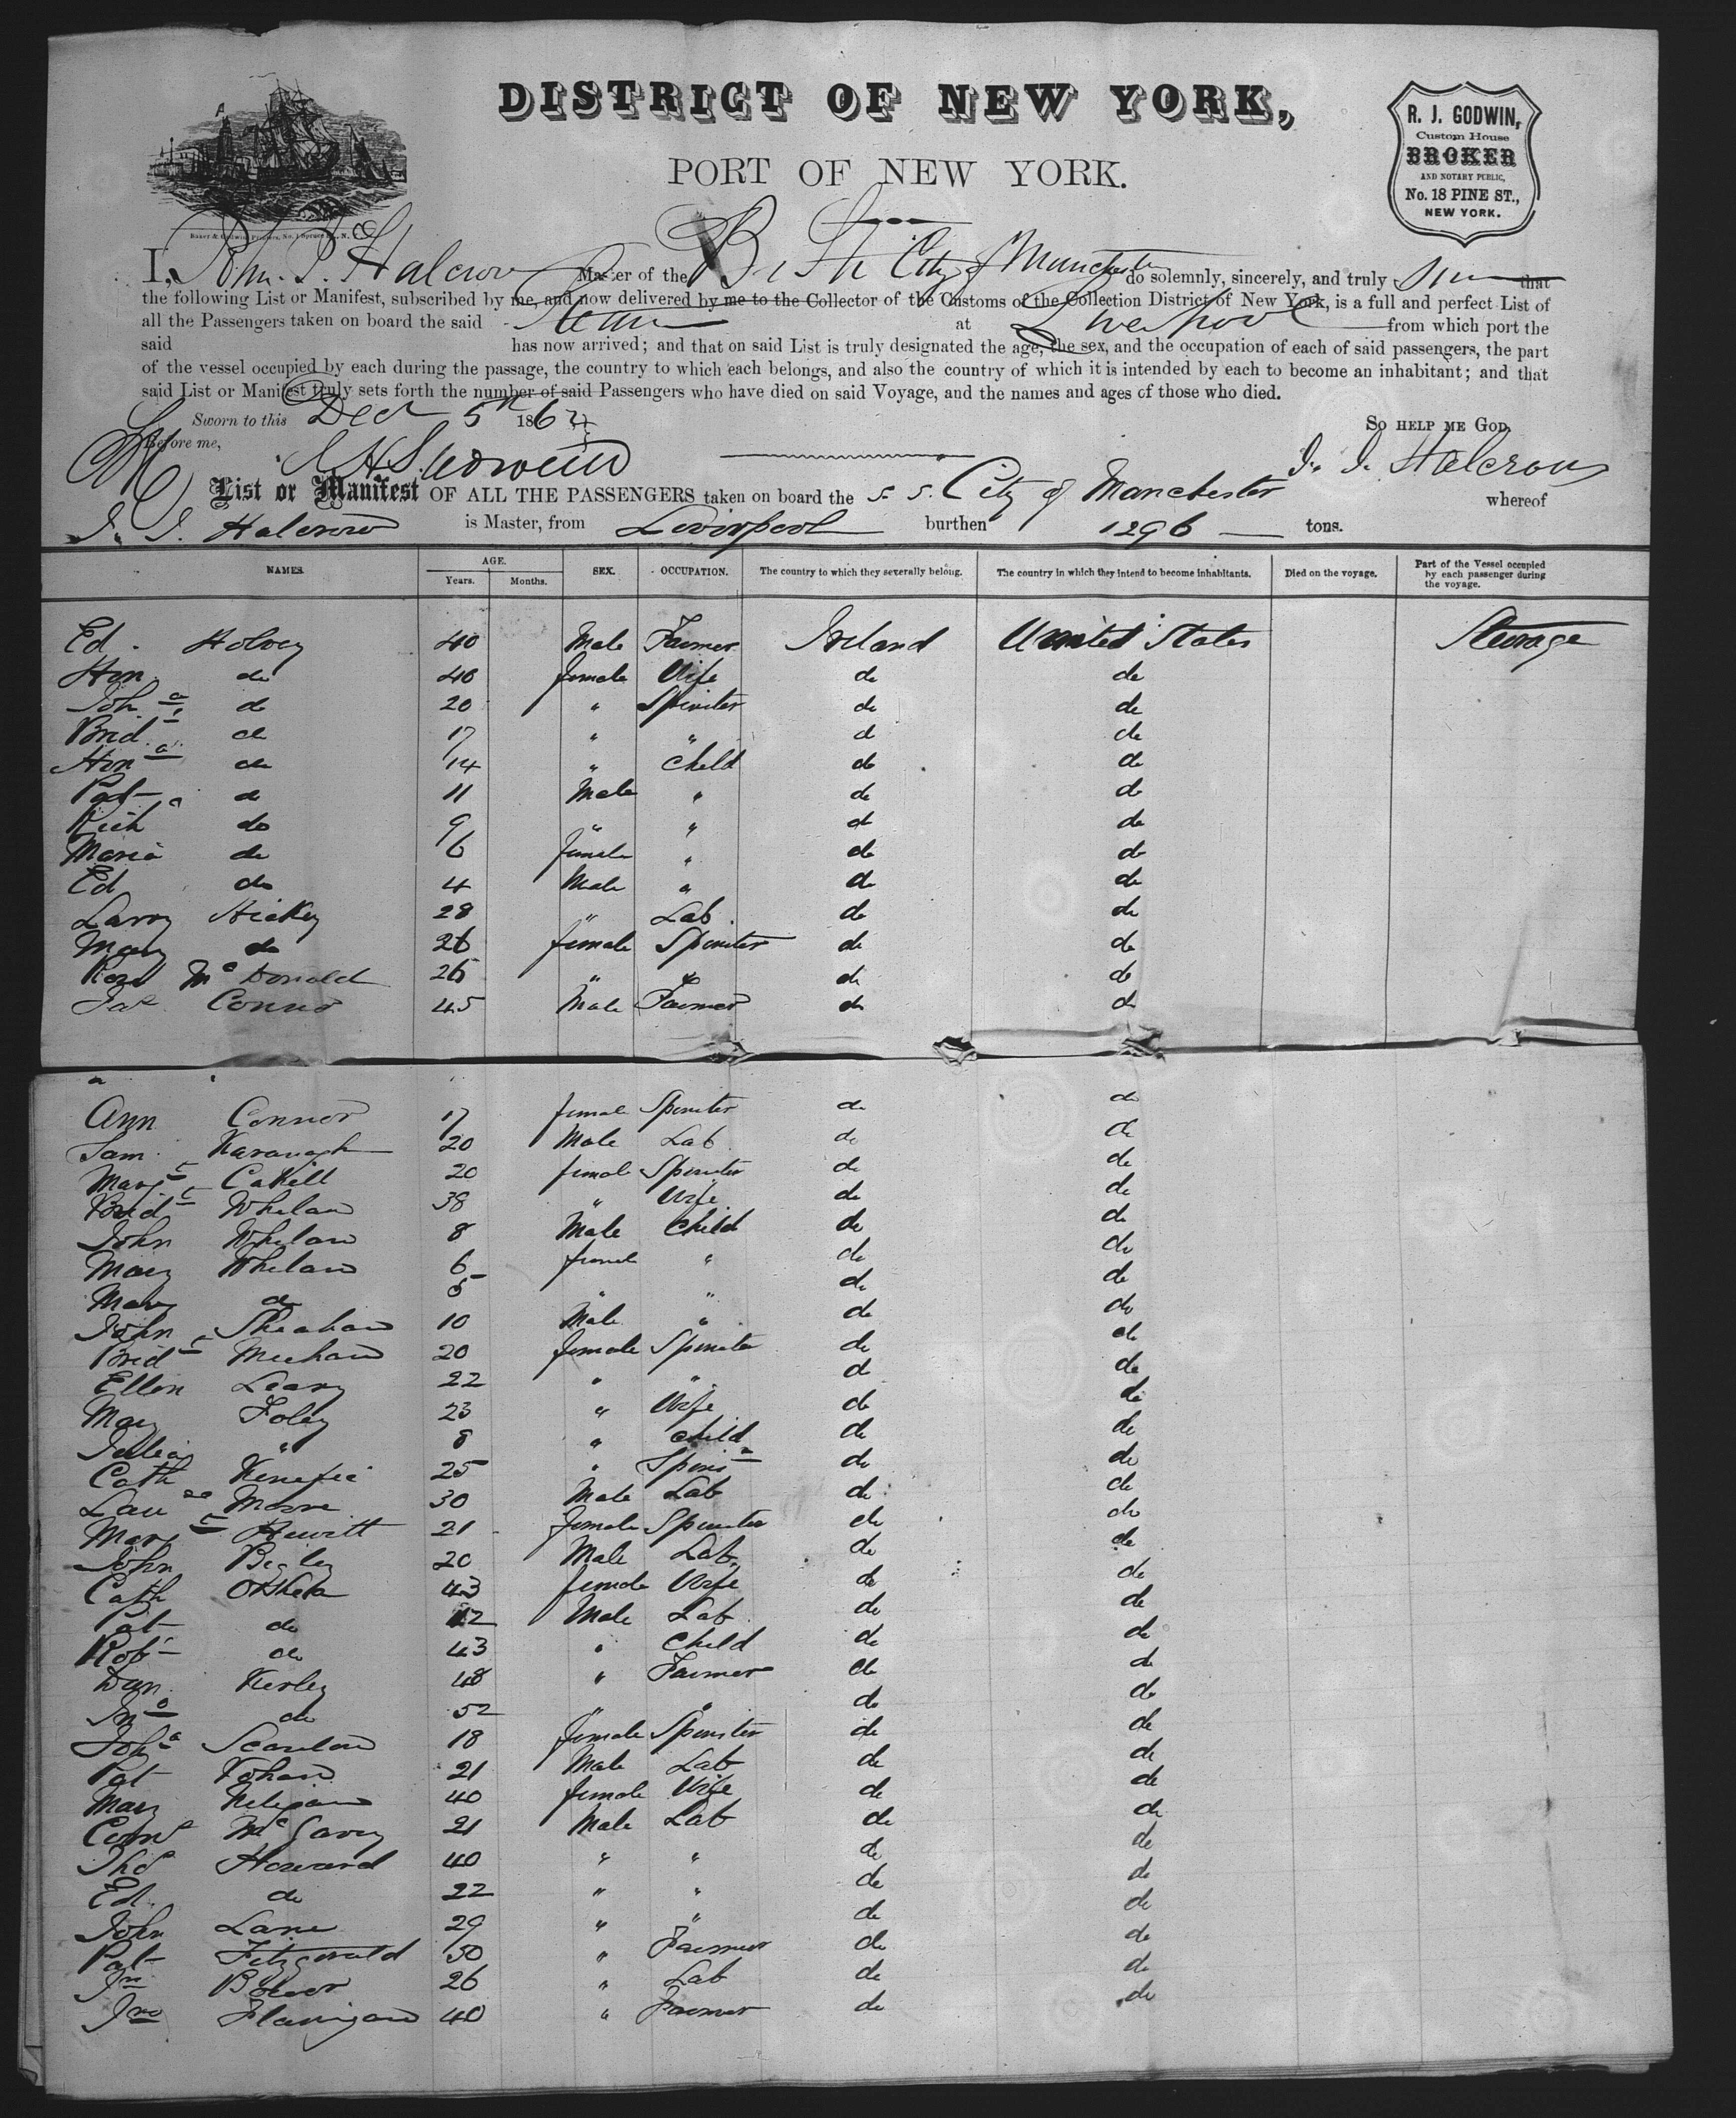 DISTRICT OF NEW YORK,
PORT OF NEW YORK.
R. J. GODWIN,
Custom House
BROKER
AND NOTARY PUBLIC,
No. 18 PINE ST.,
NEW YORK.
I, Halcrow Master of the City of Manchester do solemnly, sincerely, and truly that
the following List or Manifest, subscribed by me, and now delivered by me to the Collector of the Customs of the Collection District of New York, is a full and perfect List of
all the Passengers taken on board the said at Liverpool from which port the
said has now arrived; and that on said List is truly designated the age, the sex, and the occupation of each of said passengers, the part
of the vessel occupied by each during the passage, the country to which each belongs, and also the country of which it is intended by each to become an inhabitant; and that
said List or Manifest truly sets forth the number of said Passengers who have died on said Voyage, and the names and ages of those who died.
Sworn to this Dec 5th 186 So HELP ME GOD.
Before me,
J. J. Halcrow
List or Manifest OF ALL THE PASSENGERS taken on board the S. S. City of Manchester whereof
J. J. Halcrow is Master, from Liverpool burthen 1296 tons.
NAMES. AGE. Years. Months. SEX. OCCUPATION. The country to which they severally belong. The country in which they intend to become inhabitants. Died on the voyage. Part of the Vessel occupied by each passenger during the voyage.
Ed. Holvey 40 Male Farmer Ireland United States Steerage
Hon do 40 female Wife do do
Joha do 20 " Spinster do do
Brid do 17 " " do do
Hona do 14 " Child do do
Pat do 11 Male " do do
Rich do 9 " " do do
Maria do 6 female " do do
Ed do 4 Male " do do
Larry Hickey 28 " Lab. do do
Mary do 26 female Spinster do do
McDonald 26 " do do
Jas Connor 45 Male Farmer do do
Ann Connor 17 female Spinster do do
Sam. Kavanagh 20 Male Lab do do
Margt Cahill 20 female Spinster do do
Bridt Whelan 38 " Wife do do
John Whelan 8 Male Child do do
Mary Whelan 6 female " do do
Mary do 5 " " do do
John Sheahan 10 Male " do do
Bridt Meehan 20 female Spinster do do
Ellen Leary 22 " " do do
Mary Foley 23 " Wife do do
Julia " 8 " Child do do
Cath Kenefic 25 " Spinsr do do
Lau Moore 30 Male Lab do do
Margt Hewitt 21 female Spinster do do
John Begley 20 Male Lab. do do
Cath OShea 43 female Wife do do
Pat do Male Lab do do
Robt do 43 " Child do do
Dan. Kerley 48 " Farmer do do
Jno do 52 " " do do
Joha Scanlon 18 female Spinster do do
Pat 21 Male Lab do do
Mary Neligan 40 female Wife do do
Corns 21 Male Lab do do
Thos Howard 40 " " do do
Ed. do 22 " " do do
John Lane 29 " " do do
Pat Fitzgerald 50 " Farmer do do
Jn 26 " Lab do do
Jno Flanigan 40 " Farmer do do